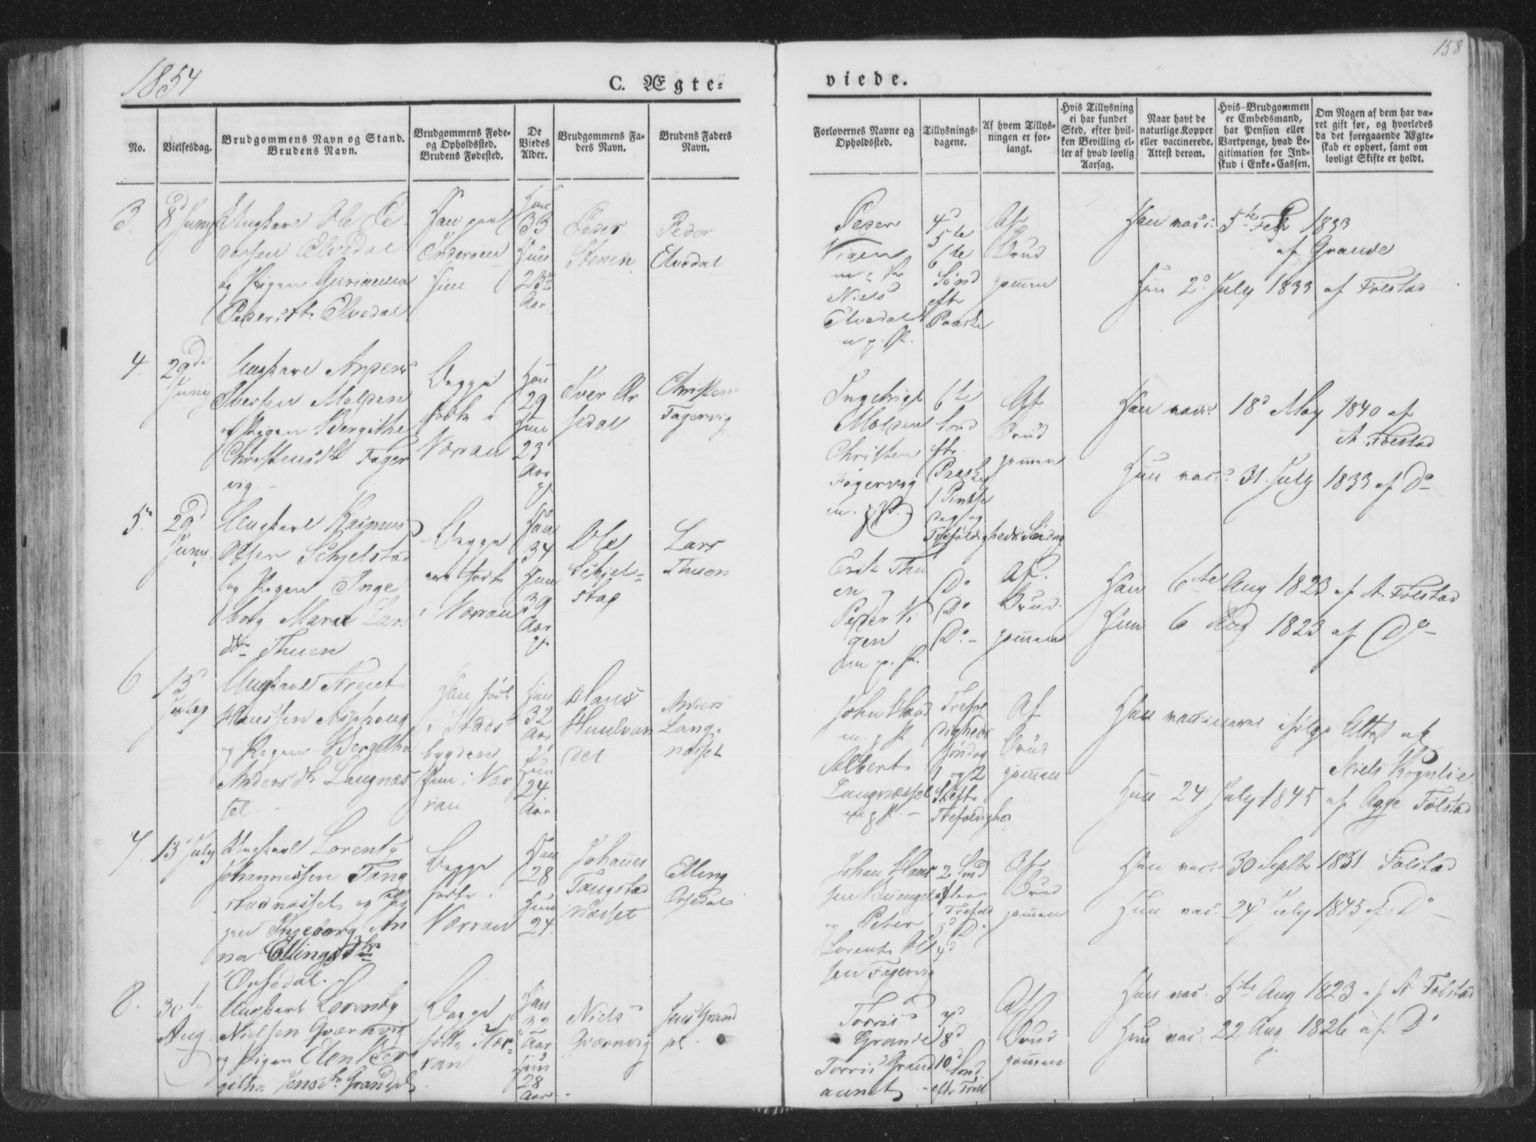 158
1854
C. Ægte-
viede.
No.
Vielsesdag.
Brudgommens Navn og Stand.
Brudens Navn.
Brudgommens Føde-
og Opholdssted.
Brudens Fødested.
De
Viedes
Alder.
Brudgommens Fa-
ders Navn.
Brudens Faders
Navn.
Forlovernes Navne og
Opholdssted.
Tillysnings-
dagene.
Af hvem Tillys-
ningen er for-
langt.
Hvis Tillysning
ei har fundet
Sted, efter hvil-
ken Bevilling el-
ler af hvad lovlig
Aarsag.
Naar havt de
naturlige Kopper
eller vaccinerede.
Attest derom.
Hvis Brudgommen
er Embedsmand,
har Pension eller
Vartpenge, hvad Le-
gitimation for Ind-
skud i Enke-Cassen.
Om Nogen af dem har væ-
ret gift før, og hvorledes
da det foregaaende Ægte-
skab er ophørt, samt om
lovligt Skifte er holdt.
3.
8d Juny
Ungkarl Ole Pe-
dersen Elvedal
og Pigen
Pedersdtr Elvedal
Han
33
Hun
Aar
Peder
Peder
Elvedal
Peder
Vigen
Niels
Elvedal
4d
5te
6te
Sønd
eft
Paaske
Af
Brud
gommen
Han vacc. 5te Feb 1833
af Grande
Hun 2d July 1833 af Følstad
4.
29de
Juny
Ungkarl
Iversen Molpen
og Pigen Bergitha
Christensdtr Fager
vig.
Begge
født i
Værran
Han
29
Hun
23
Aar
Iver Ar
sedal
Christen
Fagervig
Ingebrigt
Christen
Fagervig
6te
Sønd
eft.
Paaske
1 Pintse
dag og
Trefoldigheds Søndag
Af
Brud
gommen
Han vacc. 18d May 1840 af
A. Følstad
Hun vacc. 31 July 1833 af Do
5.
29d
Juny
Ungkarl Rasmus
Olsen Schjelstad
og Pigen Inge
borg Maria Lars
dtr Thuen
Begge
ere født
i Værran
Han
34
Hun
39
Aar
Ole
Schjel-
stad
Lars
Thuen
Erik Thu
en
Peder Vi
gen
Do
Do
Do
Af
Brud
gommen
Han 6te Aug 1823 af A. Følstad
Hun 6 Aug 1823 af Do
6
13
July
Ungkarl
Hanssen Asphoug
og Pigen Bergitha
Andersdtr Langnæs
set
Han født
i Stads
bygden
Hun i Vær
ran
Han
32
Aar
Hun
24
Aar
Hans
Anders
Lang-
næsset
John
Albert
Langnæsset
Trefol
digheds
Søndag
1 og 2
S eft
Trefoldighed
Af
Brud
gommen
Han vaccineret ifølge Attest af
Niels
Hun 24 July 1845 af Aage Følstad
7.
13d July
Ungkarl Lorents
Johannessen Tang
stadnæsset og Pi
gen Ingeborg An
na Ellingsdtr
Orsedal.
Begge
født i
Værran
Han
28
Hun
24
Johannes
Tangstad
næsset
Elling
Orsedal
Johan Hans
sen
og Peter
Lorents Ol
sen Fagervig
2 Sønd
efter
Trefold
3d Do
4d
Af
Brud
gommen
Han vacc. 30 Septbr 1831 Følstad
Hun vac. 24 July 1845 af Do
8.
30d
Aug.
Ungkarl Lorents
Nielsen Qværnvig
og Pigen Elen Ber
githa Jensdtr
Begge
født Vær-
ran
Han
32
Aar
Hun
28
Aar
Niels
Qværnvig
Torris
Grande
Torris Grande
aunet
7d
8d
10d
Sønd
efter Trefol
Af
Brud
gommen
Han vac. 5te Aug 1823 af A Følstad
Hun vac. 22 Aug 1826 af Do